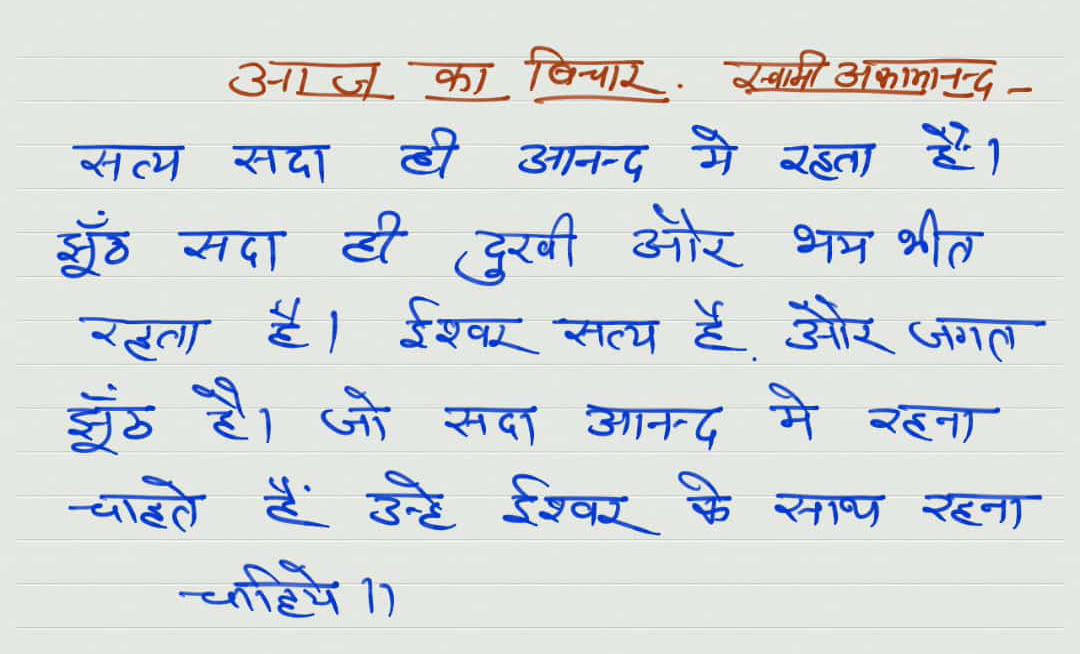 आज का विचार. स्वामी अकामानन्द -
सत्य सदा ही आनन्द मे रहता है।
झूँठ सदा ही दुखी और भय भीत
रहता है। ईश्वर सत्य है. और जगत
झूँठ है। जो सदा आनन्द मे रहना
चाहते हैं उन्हे ईश्वर के साथ रहना
चाहिये ।।